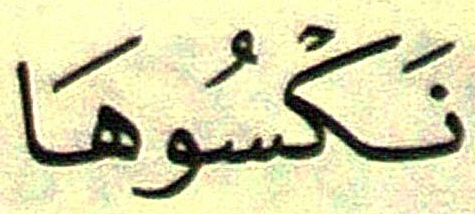 نَكْسُوهَا